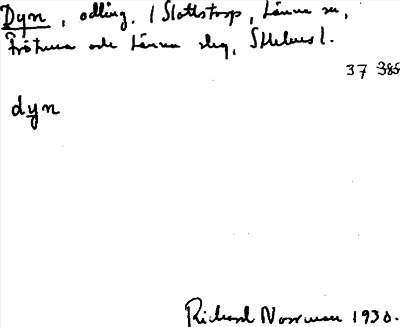 Dyn, odling. / Slottstorp, Länna sn,
Frötuna och Länna slg, Sthlms l.
37 385
dyn
Richard Norrman 1930.